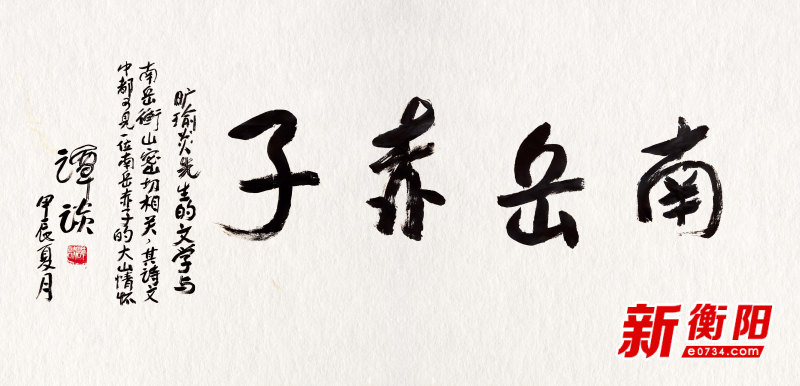 南岳赤子
旷瑜炎先生的文学与
南岳衡山密切相关，其诗文
中都可见一位南岳赤子的大山情怀
谭谈
甲辰夏月
新衡阳
e0734.com